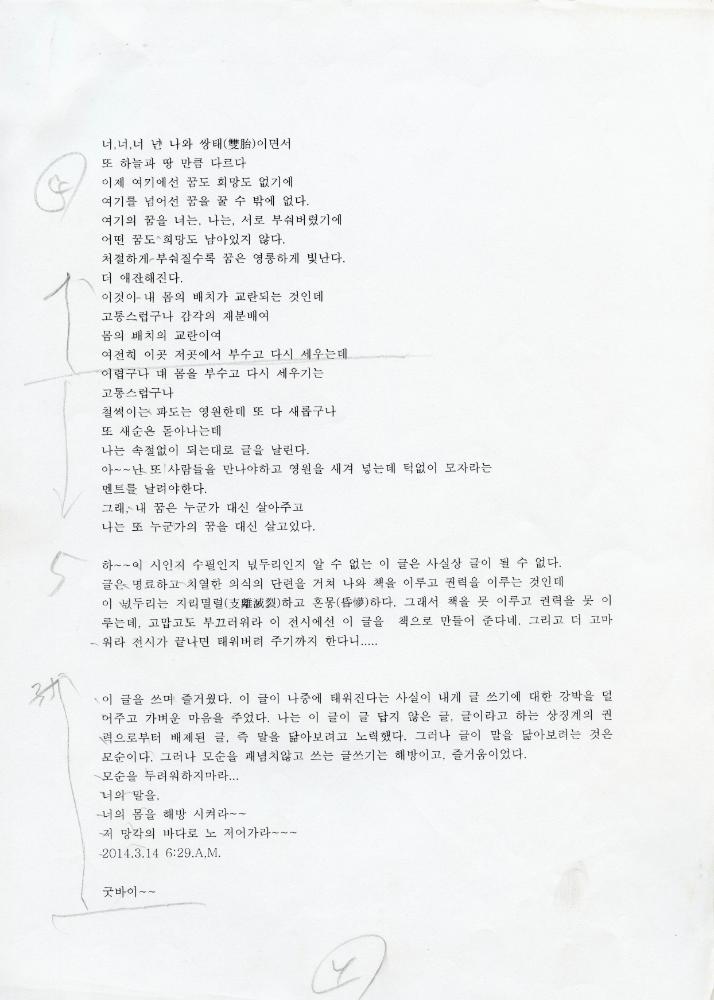 너,너,너 넌 나와 쌍태(雙胎)이면서
또 하늘과 땅 만큼 다르다
이제 여기에선 꿈도 희망도 없기에
여기를 넘어선 꿈을 꿀 수 밖에 없다.
여기의 꿈을 너는, 나는, 서로 부숴버렸기에
어떤 꿈도 희망도 남아있지 않다.
처절하게 부숴질수록 꿈은 영롱하게 빛난다.
더 애잔해진다.
이것이 내 몸의 배치가 교란되는 것인데
고통스럽구나 감각의 재분배여
몸의 배치의 교란이여
여전히 이곳 저곳에서 부수고 다시 세우는데
어렵구나 내 몸을 부수고 다시 세우기는
고통스럽구나
철썩이는 파도는 영원한데 또 다 새롭구나
또 새순은 돋아나는데
나는 속절없이 되는대로 글을 날린다.
아~~난 또 사람들을 만나야하고 영원을 새겨 넣는데 턱없이 모자라는
멘트를 날려야한다.
그래, 내 꿈은 누군가 대신 살아주고
나는 또 누군가의 꿈을 대신 살고있다.
5
하~~이 시인지 수필인지 넋두리인지 알 수 없는 이 글은 사실상 글이 될 수 없다.
글은 명료하고 치열한 의식의 단련을 거쳐 나와 책을 이루고 권력을 이루는 것인데
이 넋두리는 지리멸렬(支離滅裂)하고 혼몽(昏懜)하다. 그래서 책을 못 이루고 권력을 못 이
루는데, 고맙고도 부끄러워라 이 전시에선 이 글을 책으로 만들어 준다네. 그리고 더 고마
워라 전시가 끝나면 태워버려 주기까지 한다니.....
이 글을 쓰며 즐거웠다. 이 글이 나중에 태워진다는 사실이 내게 글 쓰기에 대한 강박을 덜
어주고 가벼운 마음을 주었다. 나는 이 글이 글 답지 않은 글, 글이라고 하는 상징계의 권
력으로부터 배제된 글, 즉 말을 닮아보려고 노력했다. 그러나 글이 말을 닮아보려는 것은
모순이다. 그러나 모순을 괘념치않고 쓰는 글쓰기는 해방이고, 즐거움이었다.
모순을 두려워하지마라...
너의 말을,
너의 몸을 해방 시켜라~~
저 망각의 바다로 노 저어가라~~~
2014.3.14 6:29.A.M.
굿바이~~